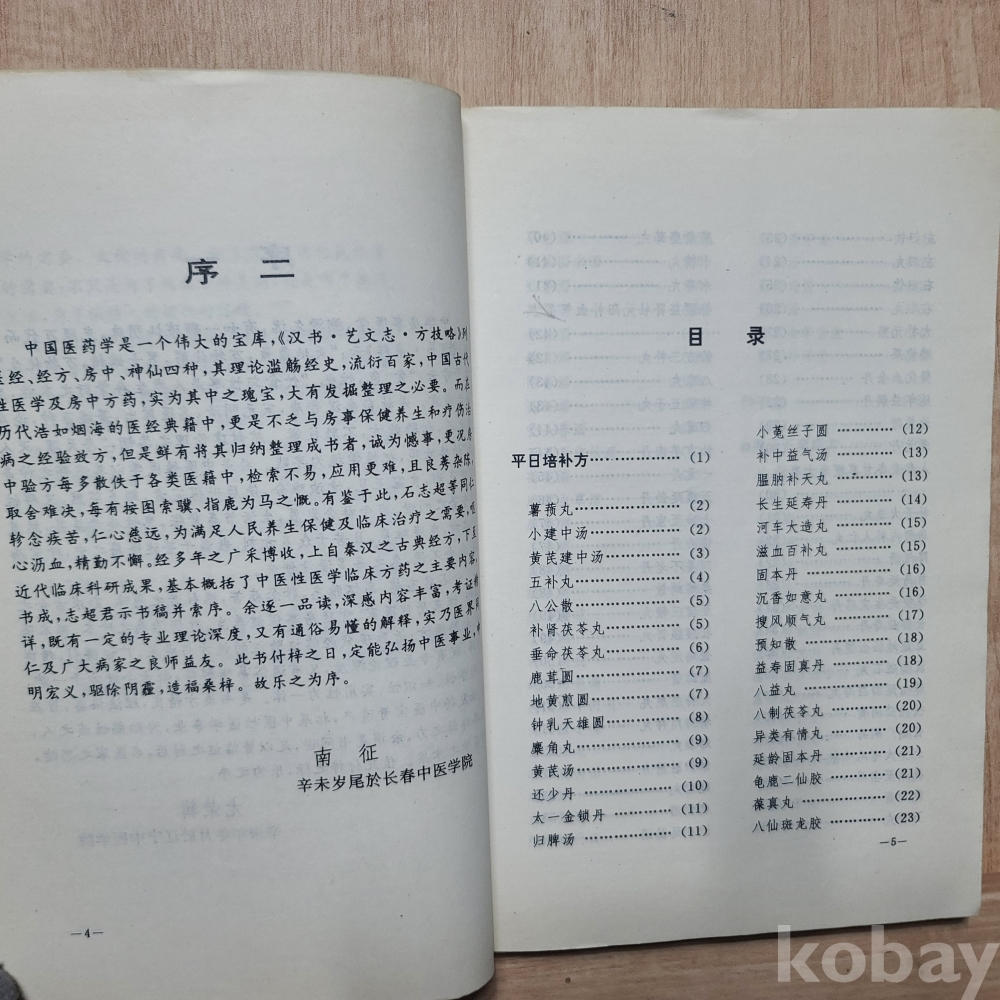 序二
中国医药学是一个伟大的宝库,《汉书·艺文志·方技略》列
医经、经方、房中、神仙四种,其理论滥觞经史,流衍百家,中国古代
性医学及房中方药,实为其中之瑰宝,大有发掘整理之必要。而在
历代浩如烟海的医经典籍中,更是不乏与房事保健养生和疗伤治
病之经验效方,但是鲜有将其归纳整理成书者,诚为憾事,更况
中验方每多散佚于各类医籍中,检索不易,应用更难,且良莠杂陈,
取舍难决,每有按图索骥、指鹿为马之慨。有鉴于此,石志超等同仁
轸念疾苦,仁心慈远,为满足人民养生保健及临床治疗之需要,
心沥血,精勤不懈。经多年之广采博收,上自秦汉之古典经方,下
近代临床科研成果,基本概括了中医性医学临床方药之主要内容,
书成,志超君示书稿并索序。余逐一品读,深感内容丰富,考证
详,既有一定的专业理论深度,又有通俗易懂的解释,实乃医界同
仁及广大病家之良师益友。此书付梓之日,定能弘扬中医事业,
明宏义,驱除阴霾,造福桑梓。故乐之为序。
南征
辛未岁尾於长春中医学院
—4—
目录
平日培补方…………(1)
薯蓣丸…………(2)
小建中汤…………(2)
黄芪建中汤…………(3)
五补丸…………(4)
八公散…………(5)
补肾茯苓丸…………(5)
垂命茯苓丸…………(6)
鹿茸圆…………(7)
地黄煎圆…………(7)
钟乳天雄圆…………(8)
麋角丸…………(9)
黄芪汤…………(9)
还少丹…………(10)
太一金锁丹…………(11)
归脾汤…………(11)
小菟丝子圆…………(12)
补中益气汤…………(13)
腽肭补天丸…………(13)
长生延寿丹…………(14)
河车大造丸…………(15)
滋血百补丸…………(15)
固本丹…………(16)
沉香如意丸…………(16)
搜风顺气丸…………(17)
预知散…………(18)
益寿固真丹…………(18)
八益丸…………(19)
八制茯苓丸…………(20)
异类有情丸…………(20)
延龄固本丹…………(21)
龟鹿二仙胶…………(21)
葆真丸…………(22)
八仙斑龙胶…………(23)
—5—
kobay